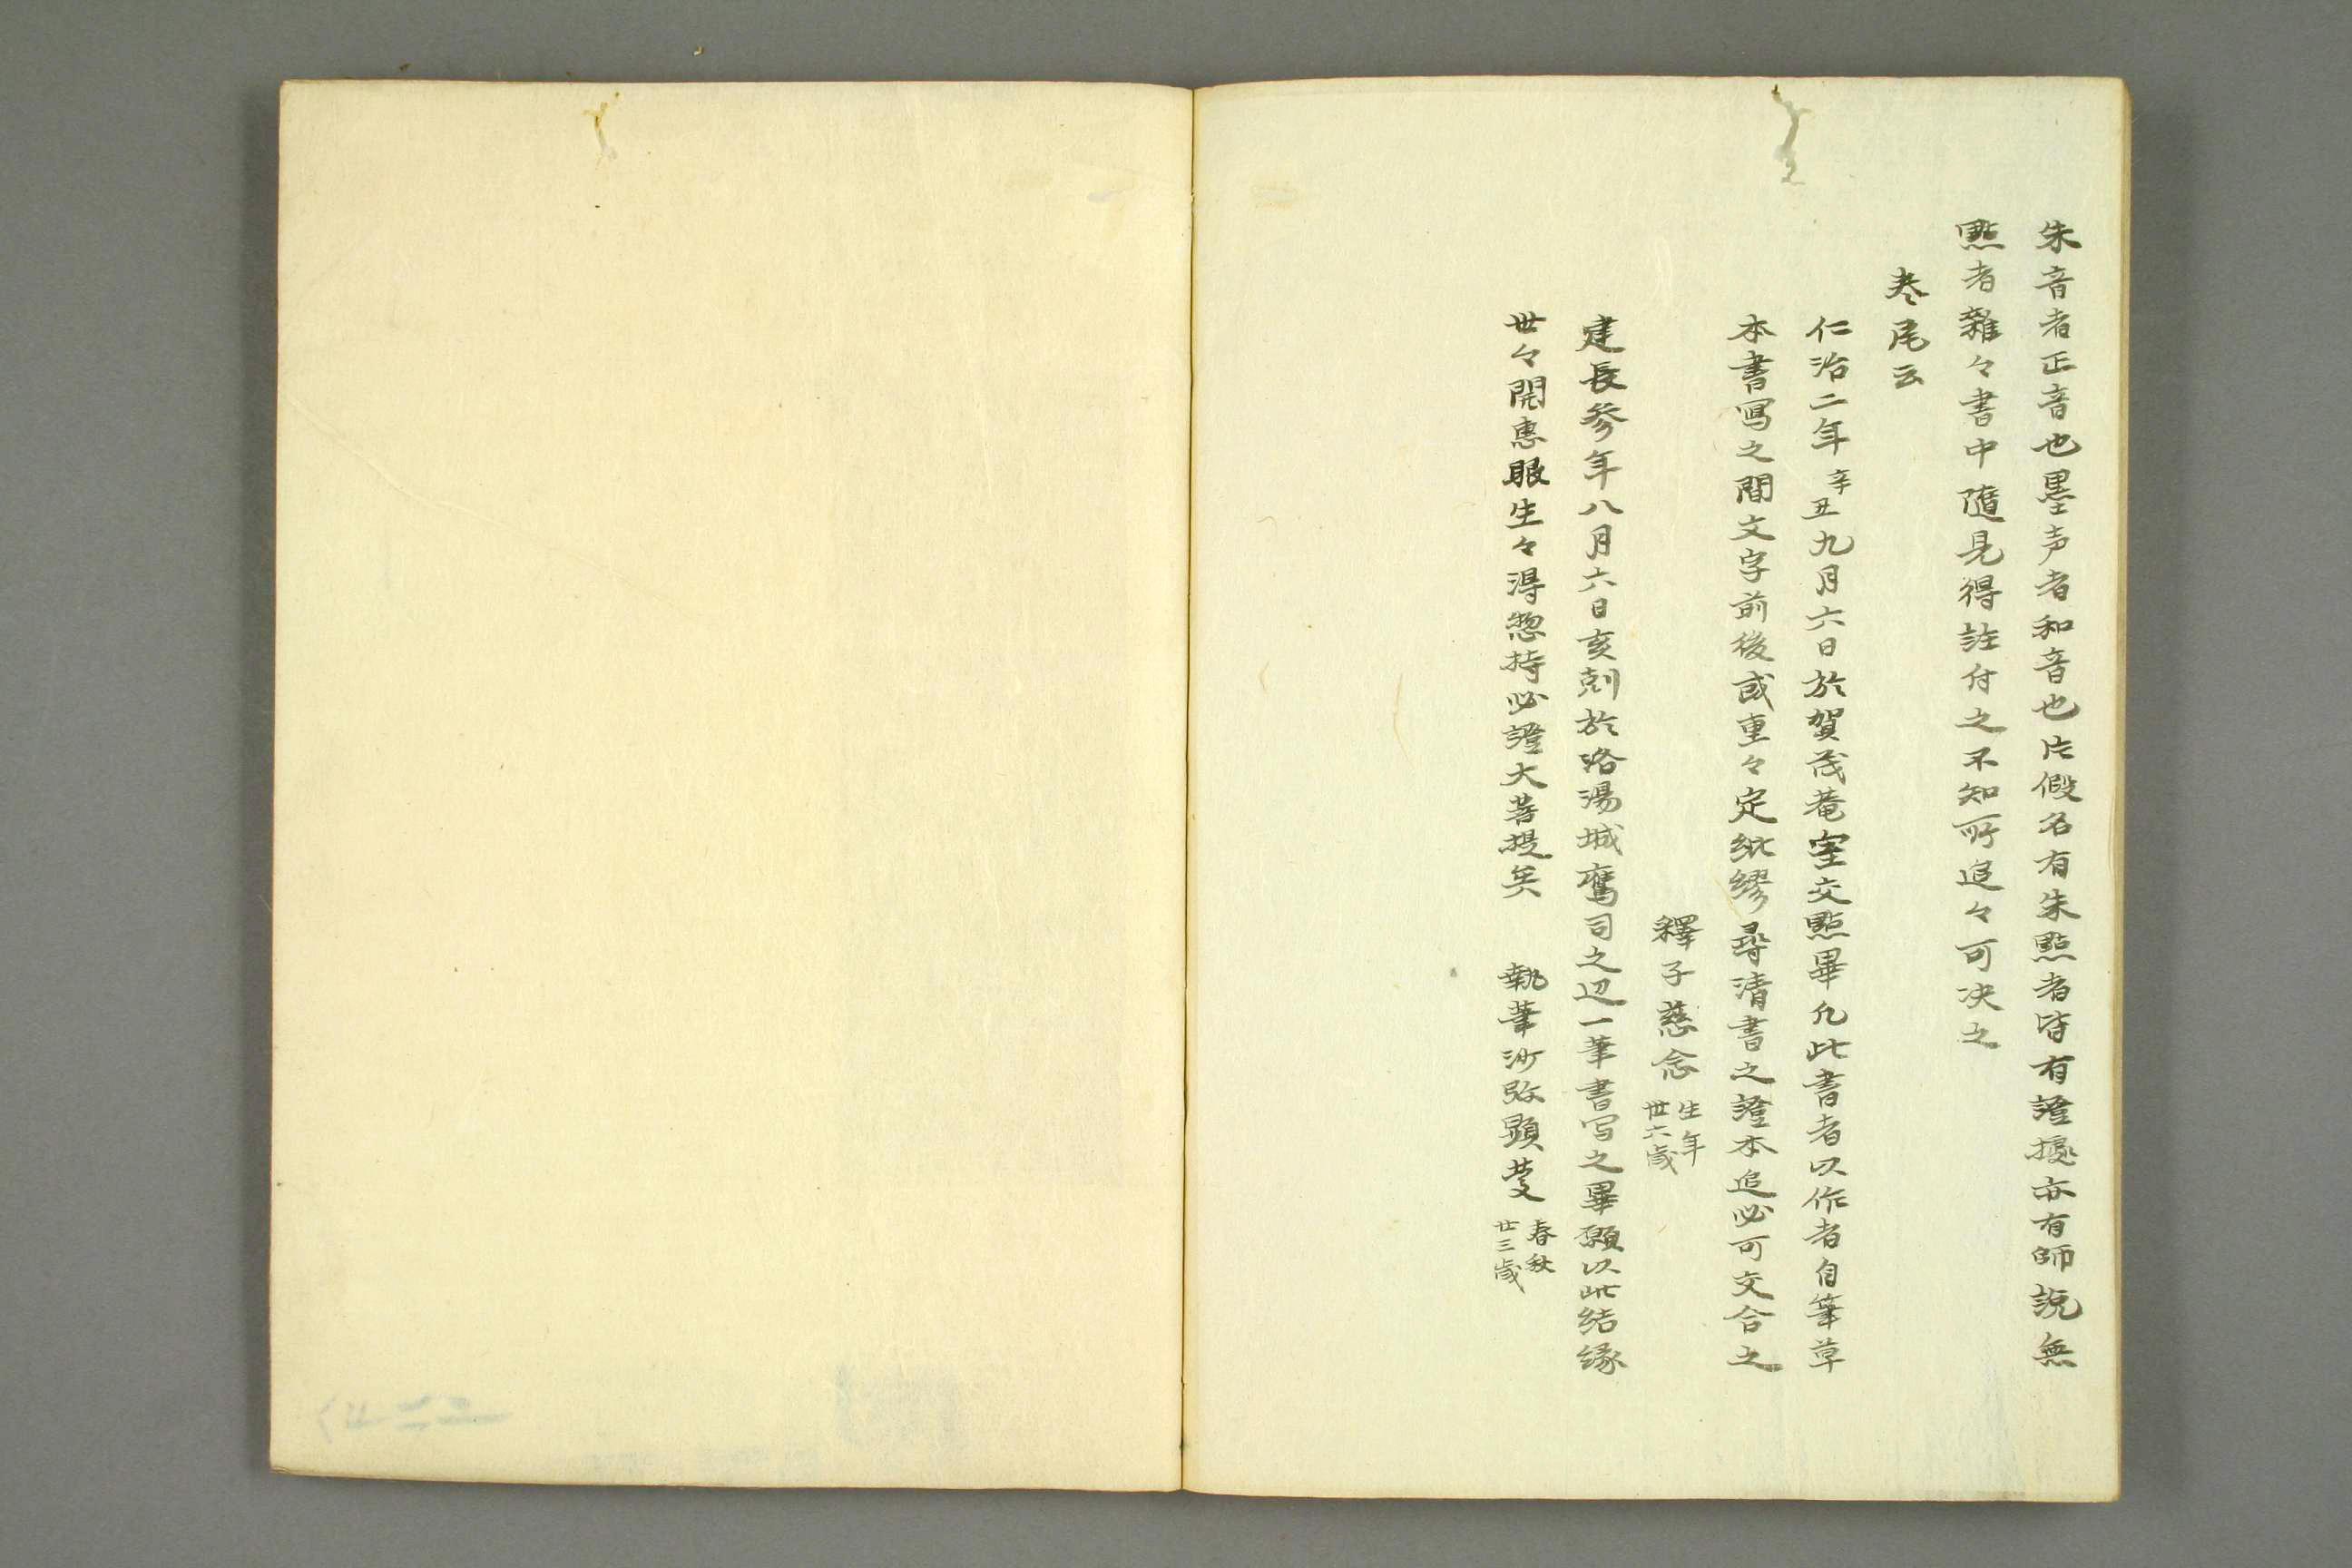 朱音者正音也墨声者和音也片假名有朱點者皆有證據亦有師説無
點者雜々書中随見得註付之不知所追々可决之
巻尾云
仁治二年辛丑九月六日於賀茂菴室交點畢凡此書者以作者自筆草
本書寫之間文字前後或重々定紕繆尋清書之證本追必可交合之
釋子慈念生年卅六歳
建長参年八月六日亥剋於洛湯城鷹司之辺一筆書写之畢願以此結縁
世々開恵眼生々得惣持必證大菩提矣　執筆沙弥顕慶春秋廿三歳